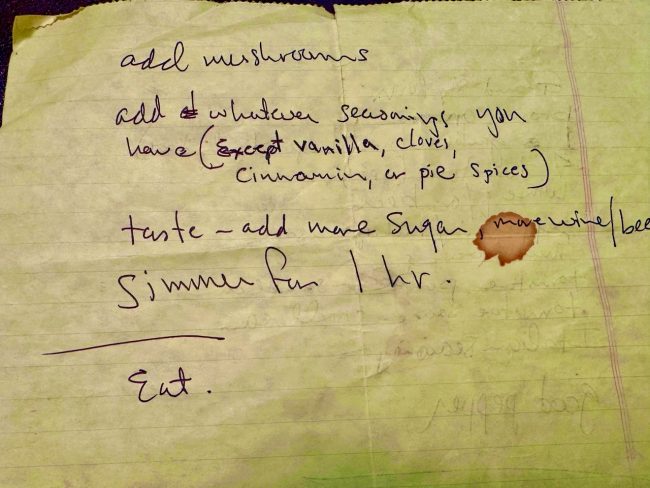 add mushrooms
add whatever seasonings you
have (Except vanilla, cloves,
Cinnamin, or pie spices)
taste - add more sugar, more wine/bee
Simmer for 1 hr.
Eat.